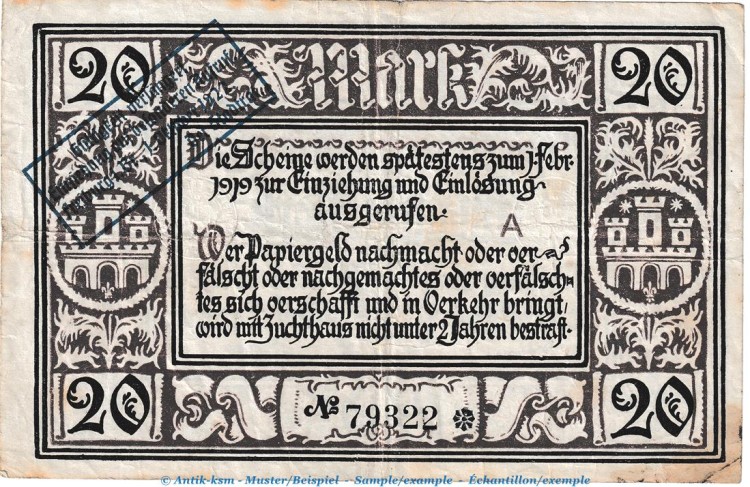 20 Mark 20
Die Scheine werden spätestens zum 1. Febr.
1919 zur Einziehung und Einlösung
ausgerufen.
A
Wer Papiergeld nachmacht oder ver-
fälscht oder nachgemachtes oder verfälsch-
tes sich verschafft und in Verkehr bringt,
wird mit Zuchthaus nicht unter 2 Jahren bestraft.
20 № 79322 20
© Antik-ksm - Muster/Beispiel - Sample/example - Échantillon/exemple